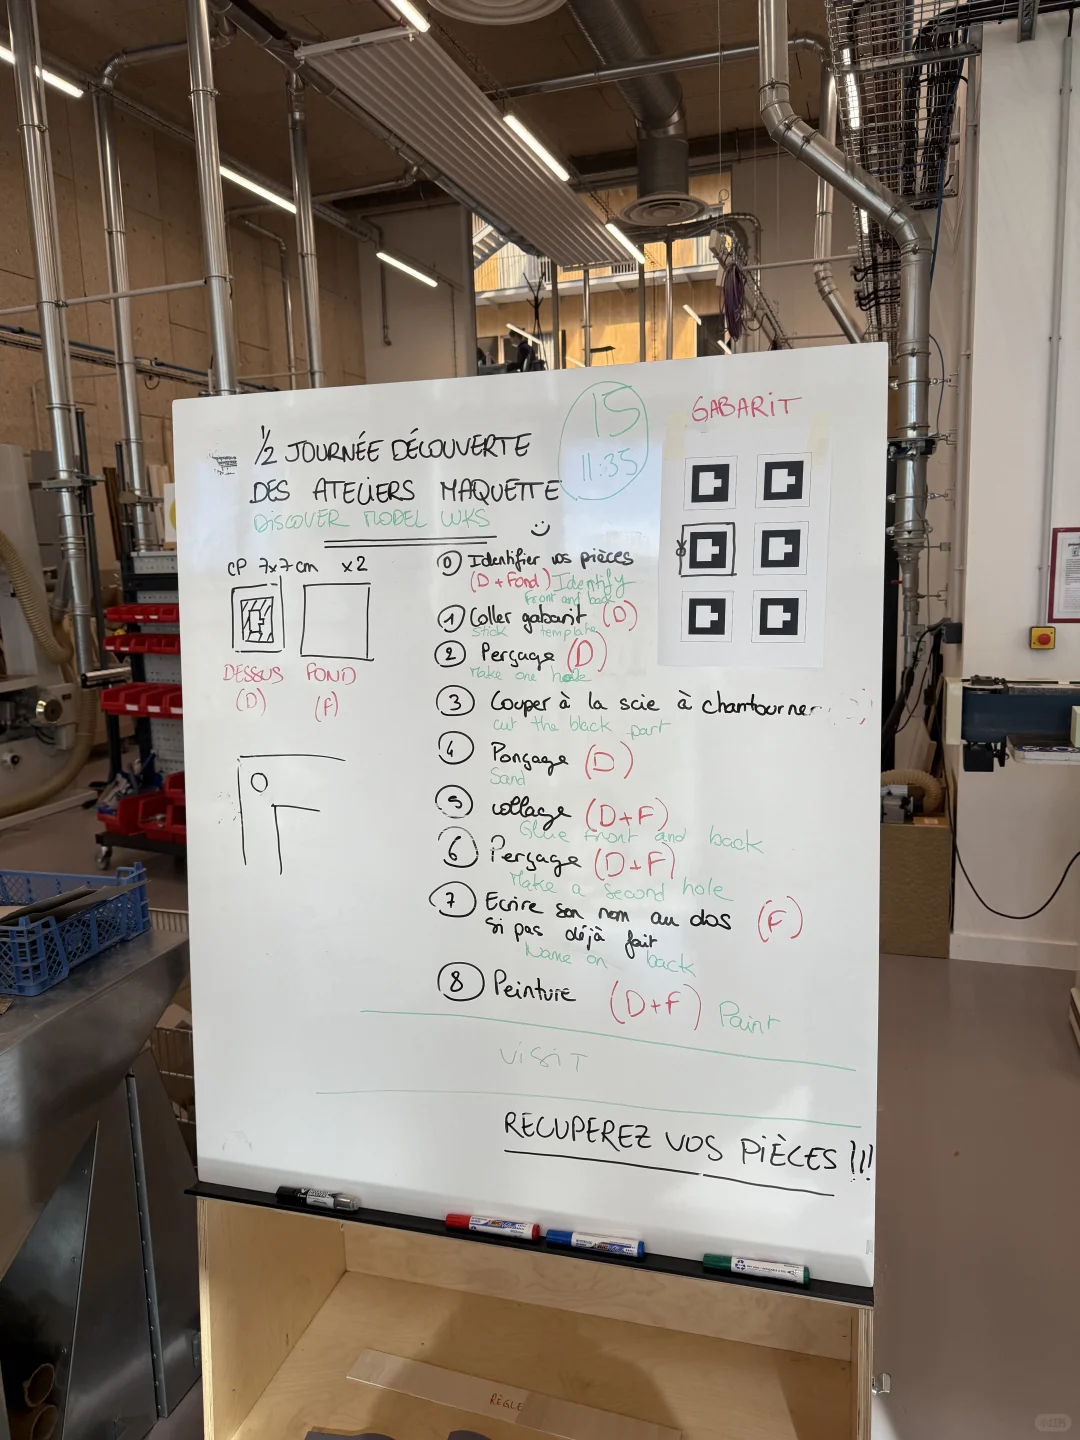 ½ JOURNÉE DÉCOUVERTE
DES ATELIERS MAQUETTE
DISCOVER MODEL WKS
15
11:35
GABARIT
CP 7x7cm x2
DESSUS
(D)
FOND
(F)
0 Identifier vos pièces
(D + Fond) Identify
Front and back
1 Coller gabarit (D)
Stick template
2 Perçage (D)
Make one hole
3 Couper à la scie à chantourner
cut the black part
4 Ponçage (D)
Sand
5 collage (D+F)
Glue front and back
6 Perçage (D+F)
Make a second hole
7 Ecrire son nom au dos (F)
si pas déjà fait
Name on back
8 Peinture (D+F) Paint
VISIT
RECUPEREZ VOS PIÈCES !!!
RÈGLE